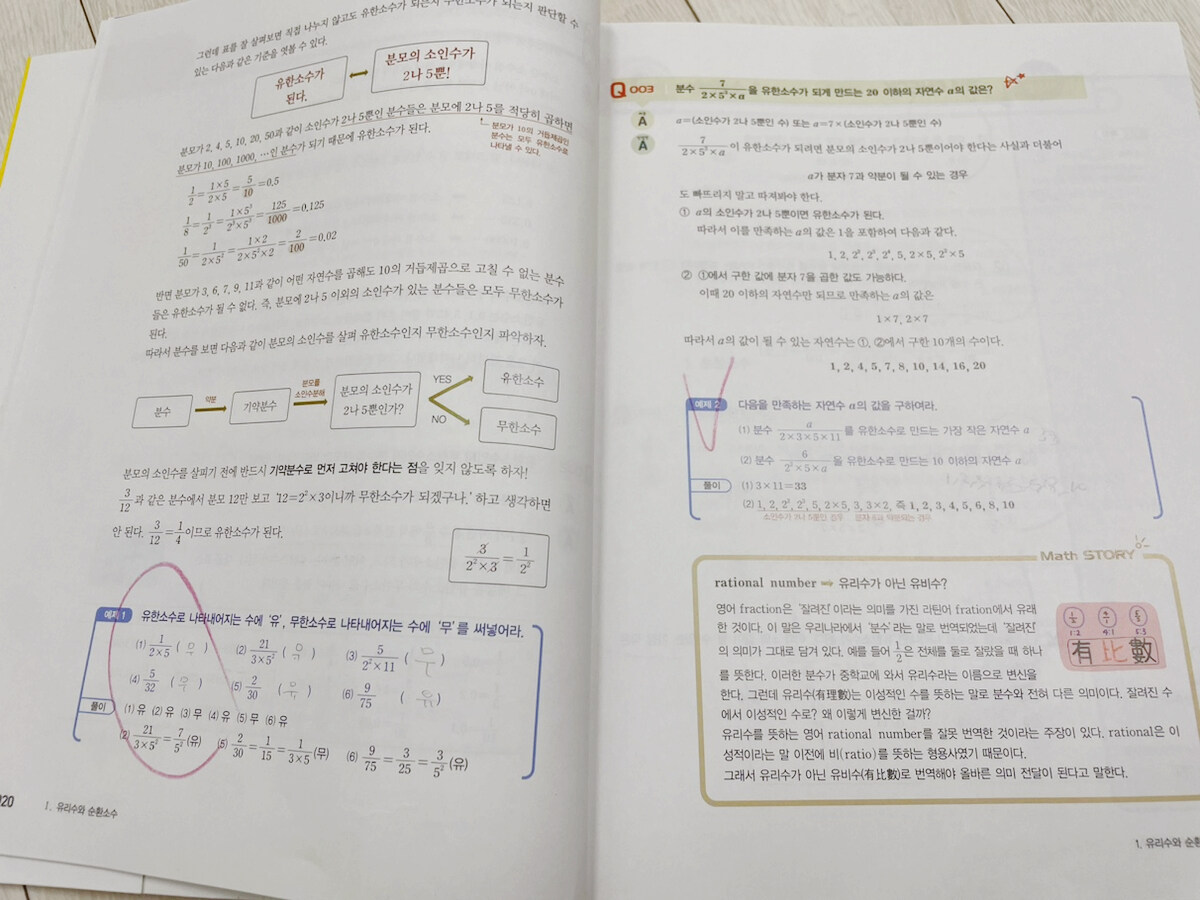 그런데 표를 잘 살펴보면 직접 나누지 않고도 유한소수가 되는지 무한소수가 되는지 판단할 수
있는 다음과 같은 기준을 엿볼 수 있다.
유한소수가 된다. ↔ 분모의 소인수가 2나 5뿐!
분모가 2, 4, 5, 10, 20, 50과 같이 소인수가 2나 5뿐인 분수들은 분모에 2나 5를 적당히 곱하면
분모가 10, 100, 1000, …인 분수가 되기 때문에 유한소수가 된다.
분모가 10의 거듭제곱인
분수는 모두 유한소수로
나타낼 수 있다.
1/2 = 1×5/2×5 = 5/10 = 0.5
1/8 = 1/2³ = 1×5³/2³×5³ = 125/1000 = 0.125
1/50 = 1/2×5² = 1×2/2×5²×2 = 2/100 = 0.02
반면 분모가 3, 6, 7, 9, 11과 같이 어떤 자연수를 곱해도 10의 거듭제곱으로 고칠 수 없는 분수
들은 유한소수가 될 수 없다. 즉, 분모에 2나 5 이외의 소인수가 있는 분수들은 모두 무한소수가
된다.
따라서 분수를 보면 다음과 같이 분모의 소인수를 살펴 유한소수인지 무한소수인지 파악하자.
분수 약분 기약분수 분모를 소인수분해 분모의 소인수가 2나 5뿐인가? YES 유한소수
NO 무한소수
분모의 소인수를 살피기 전에 반드시 기약분수로 먼저 고쳐야 한다는 점을 잊지 않도록 하자!
3/12과 같은 분수에서 분모 12만 보고 '12=2²×3이니까 무한소수가 되겠구나.' 하고 생각하면
안 된다. 3/12 = 1/4이므로 유한소수가 된다.
3/2²×3 = 1/2²
예제 1 유한소수로 나타내어지는 수에 '유', 무한소수로 나타내어지는 수에 '무'를 써넣어라.
(1) 1/2×5 ( 유 ) (2) 21/3×5² ( 유 ) (3) 5/2²×11 ( 무 )
(4) 5/32 ( 유 ) (5) 2/30 ( 유 ) (6) 9/75 ( 유 )
풀이 (1) 유 (2) 유 (3) 무 (4) 유 (5) 무 (6) 유
(2) 21/3×5² = 7/5² (유) (5) 2/30 = 1/15 = 1/3×5 (무) (6) 9/75 = 3/25 = 3/5² (유)
020 Ⅰ. 유리수와 순환소수
Q 003 분수 7/2×5³×a을 유한소수가 되게 만드는 20 이하의 자연수 a의 값은?
A a=(소인수가 2나 5뿐인 수) 또는 a=7×(소인수가 2나 5뿐인 수)
A 7/2×5³×a이 유한소수가 되려면 분모의 소인수가 2나 5뿐이어야 한다는 사실과 더불어
a가 분자 7과 약분이 될 수 있는 경우
도 빠뜨리지 말고 따져봐야 한다.
① a의 소인수가 2나 5뿐이면 유한소수가 된다.
따라서 이를 만족하는 a의 값은 1을 포함하여 다음과 같다.
1, 2, 2², 2³, 2⁴, 5, 2×5, 2²×5
② ①에서 구한 값에 분자 7을 곱한 값도 가능하다.
이때 20 이하의 자연수만 되므로 만족하는 a의 값은
1×7, 2×7
따라서 a의 값이 될 수 있는 자연수는 ①, ②에서 구한 10개의 수이다.
1, 2, 4, 5, 7, 8, 10, 14, 16, 20
예제 2 다음을 만족하는 자연수 a의 값을 구하여라.
(1) 분수 a/2×3×5×11를 유한소수로 만드는 가장 작은 자연수 a
(2) 분수 6/2²×5×a을 유한소수로 만드는 10 이하의 자연수 a
풀이 (1) 3×11=33
(2) 1, 2, 2², 2³, 5, 2×5, 3, 3×2, 즉 1, 2, 3, 4, 5, 6, 8, 10
소인수가 2나 5뿐인 경우 분자 6과 약분되는 경우
Math STORY
rational number ➡ 유리수가 아닌 유비수?
영어 fraction은 '잘려진'이라는 의미를 가진 라틴어 fration에서 유래
한 것이다. 이 말은 우리나라에서 '분수'라는 말로 번역되었는데 '잘려진'
의 의미가 그대로 담겨 있다. 예를 들어 1/2은 전체를 둘로 잘랐을 때 하나
를 뜻한다. 이러한 분수가 중학교에 와서 유리수라는 이름으로 변신을
한다. 그런데 유리수(有理數)는 이성적인 수를 뜻하는 말로 분수와 전혀 다른 의미이다. 잘려진 수
에서 이성적인 수로? 왜 이렇게 변신한 걸까?
유리수를 뜻하는 영어 rational number를 잘못 번역한 것이라는 주장이 있다. rational은 이
성적이라는 말 이전에 비(ratio)를 뜻하는 형용사였기 때문이다.
그래서 유리수가 아닌 유비수(有比數)로 번역해야 올바른 의미 전달이 된다고 말한다.
1:2 4:1 5:3
有比數
1. 유리수와 순환